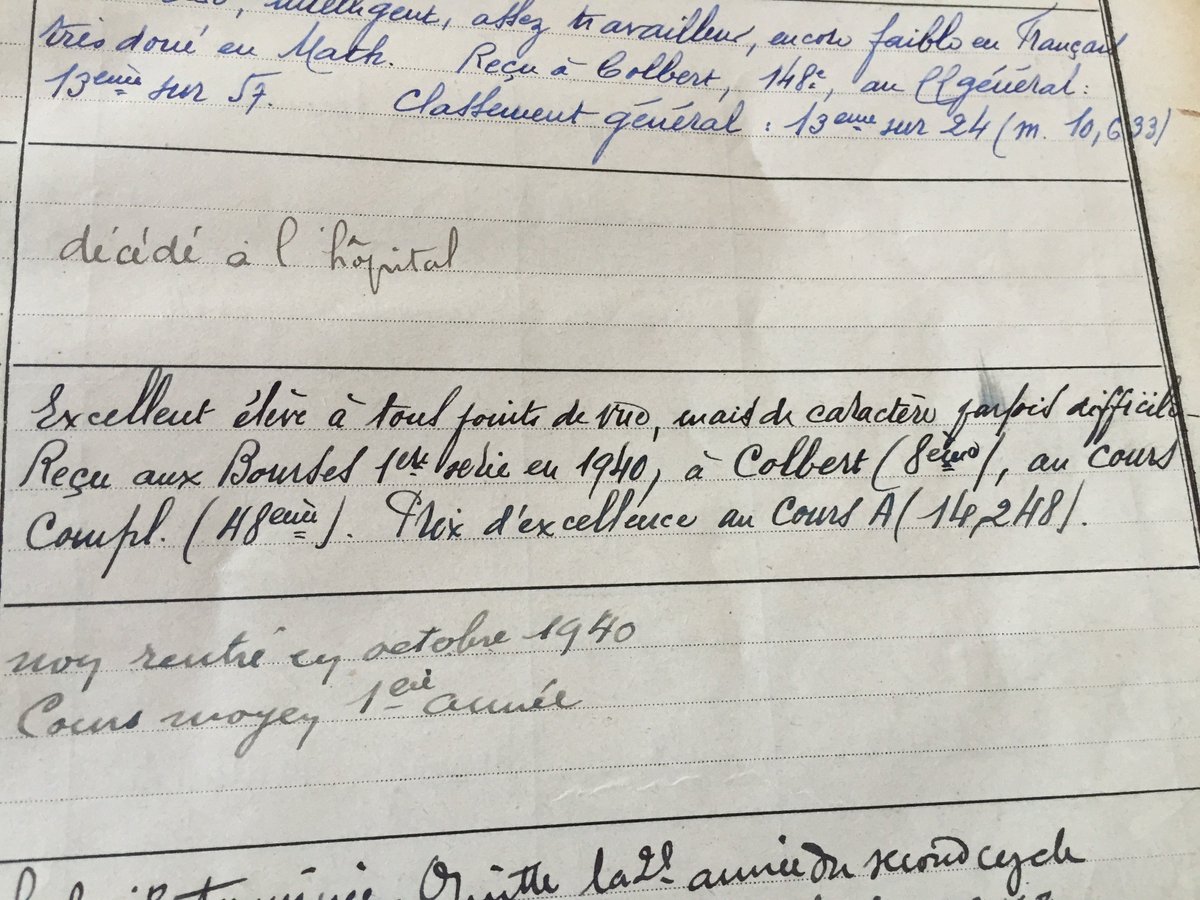 intelligent, assez travailleur, encore faible en Français
très doué en Math. Reçu à Colbert, 148e, au CC général :
13ème sur 57. Classement général : 13ème sur 24 (m. 10,633)
décédé à l'hôpital
Excellent élève à tous points de vue, mais de caractère parfois difficile
Reçu aux Bourses 1ère série en 1940, à Colbert (8ème), au cours
Compl. (48ème). Prix d'excellence au Cours A (14,248).
non rentré en octobre 1940
Cours moyen 1ère année
Quitte la 2e année du second cycle